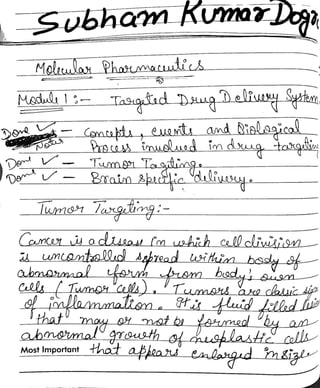 Subham Kumar Dogr
Molecular Pharmaceutics
Module 1 :- Targeted Drug Delivery System
Done ✓ - Concepts, events and Biological
Notes Process involved in drug targeting
Done ✓ - Tumor Tageting.
Done ✓ - Brain specific delivery.
Tumor Targeting :-
Cancer is a disease in which cell division
is uncontrolled spread within body of
abnormal form from body's own
cells (Tumor cells). Tumors are classic sign
of inflammation. It is fluid filled lesion
that may or not be formed by an
abnormal growth of neoplastic cells
Most Important that appears enlarged in size